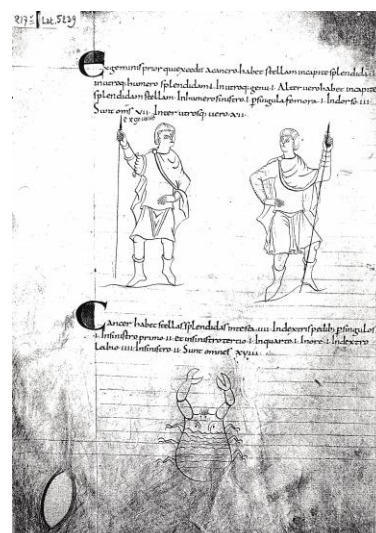 217 Lat. 5239
Ex geminis prior qui excedit a cancro habet stellam in capite splendida .i.
In utroq; humero splendidam .i. In utroq; genu .i. Alter uero habet in capite
splendidam stellam .i. In humero sinistro .i. p singula femora .i. In dorso .iii.
Sunt omes VII. Inter utrosq; uero XII.
Cancer habet stellas splendidas in testa .iiii. In dextris pedib; p singulos
.i. In sinistro primo .ii. et in sinistro tertio .i. In quarto .i. In ore .i. In dextro
Labio .iii. In sinistro .ii. Sunt omnes XVIII.